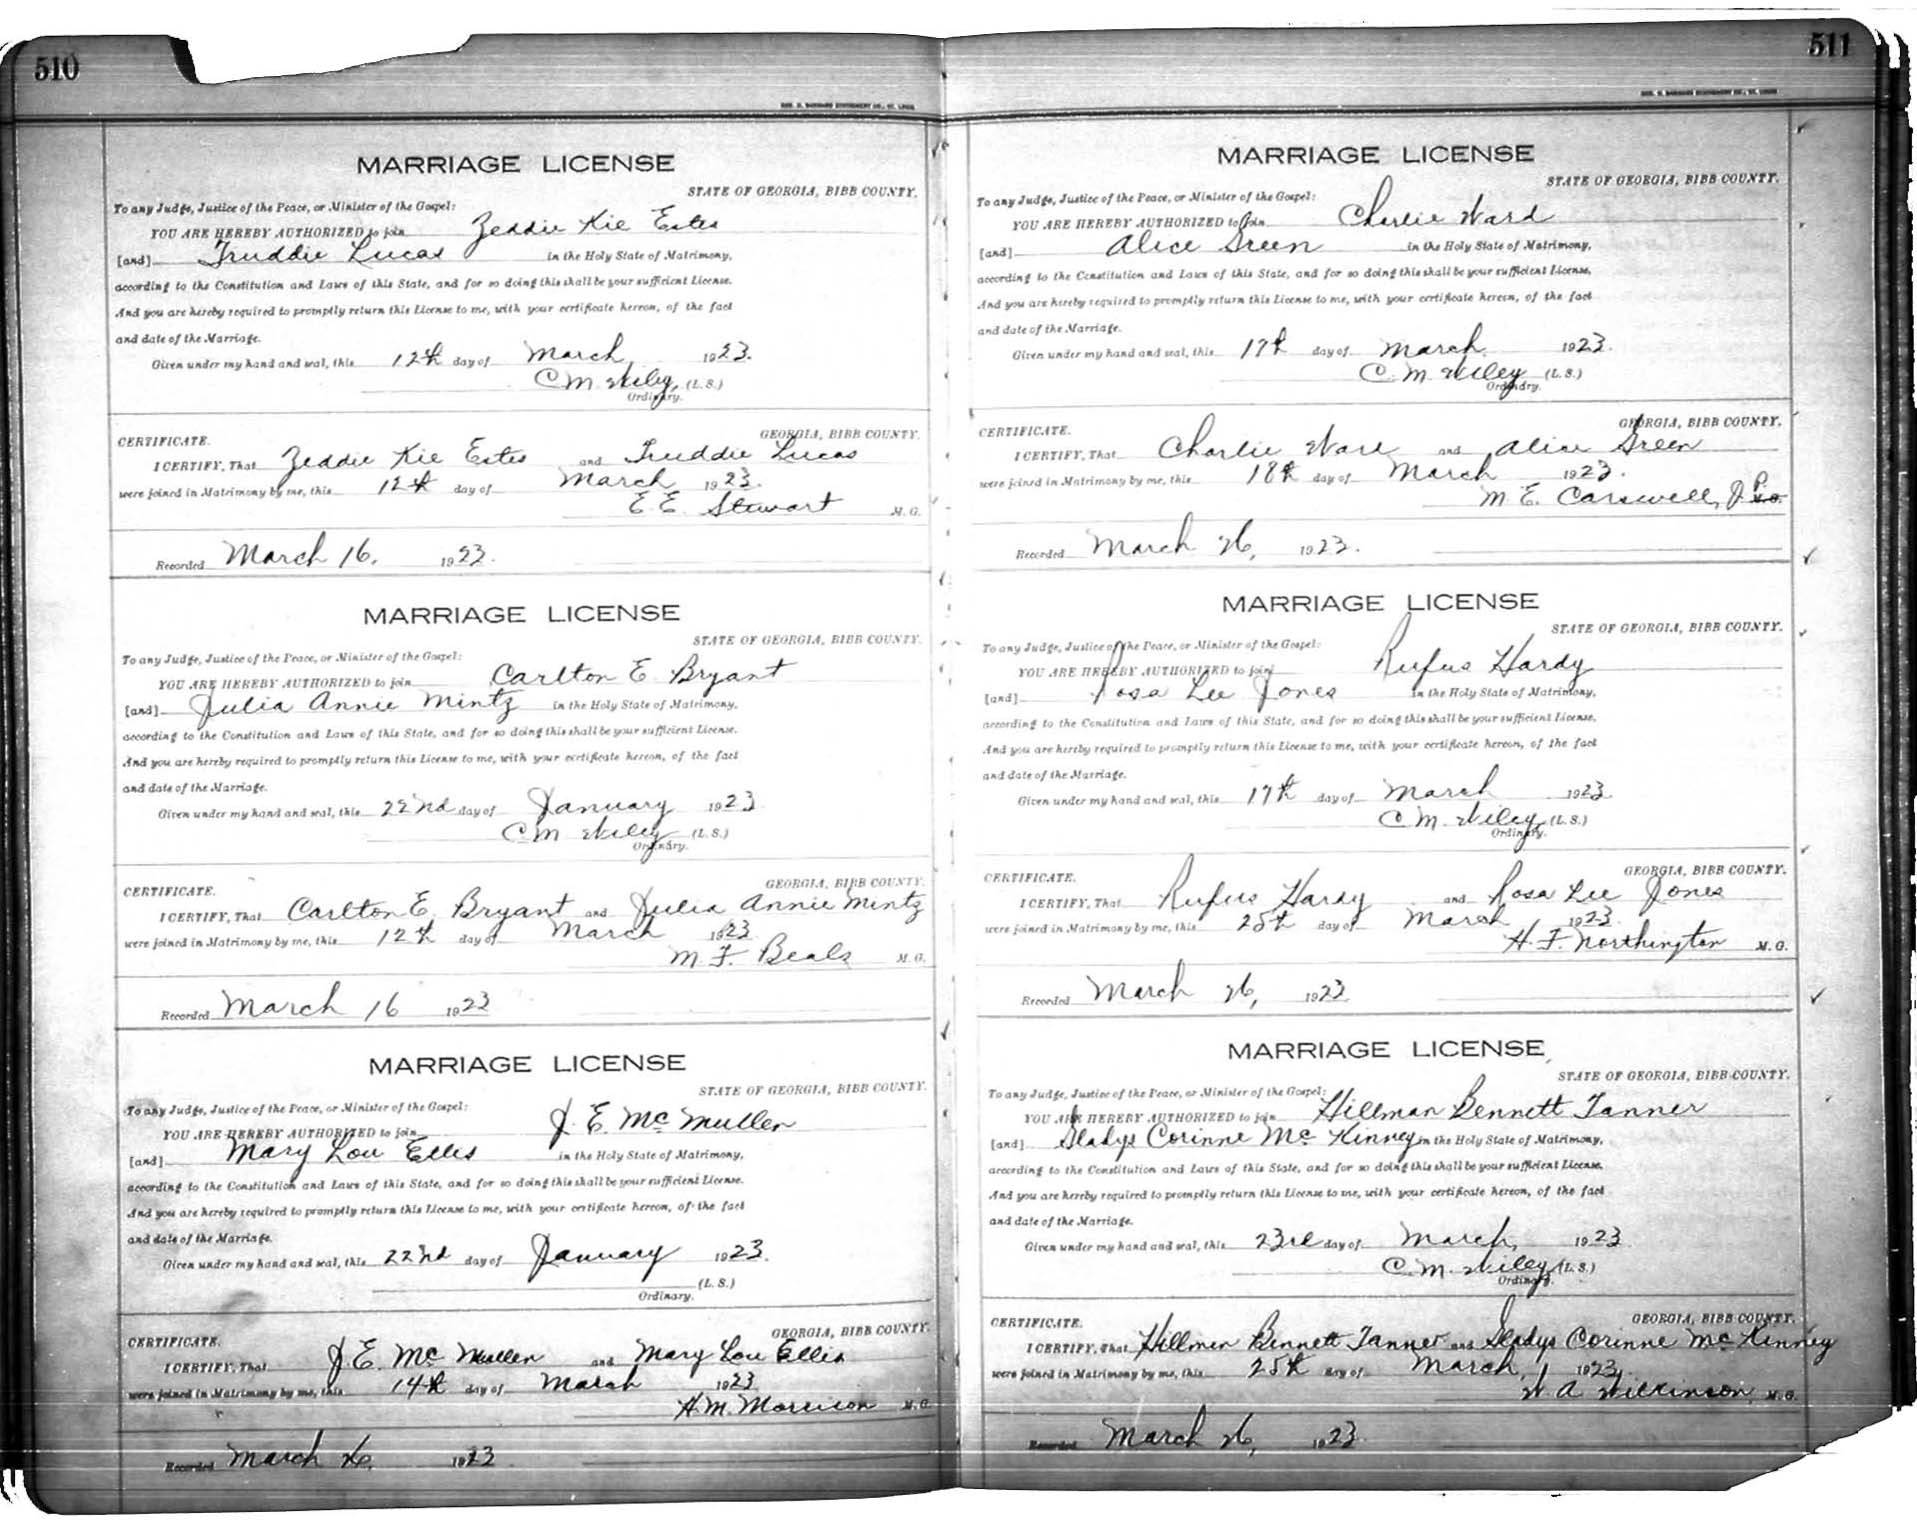 510
GEO. D. BARNARD STATIONERY CO., ST. LOUIS
MARRIAGE LICENSE
STATE OF GEORGIA, BIBB COUNTY.
To any Judge, Justice of the Peace, or Minister of the Gospel:
YOU ARE HEREBY AUTHORIZED to join Zeddie Kie Estes
[and] Truddie Lucas in the Holy State of Matrimony,
according to the Constitution and Laws of this State, and for so doing this shall be your sufficient License.
And you are hereby required to promptly return this License to me, with your certificate hereon, of the fact
and date of the Marriage.
Given under my hand and seal, this 12th day of March, 1923.
C. M. Wiley, (L. S.)
Ordinary.
GEORGIA, BIBB COUNTY.
CERTIFICATE.
I CERTIFY, That Zeddie Kie Estes and Truddie Lucas
were joined in Matrimony by me, this 12th day of March 1923.
E. E. Stewart M. G.
Recorded March 16, 1923.
MARRIAGE LICENSE
STATE OF GEORGIA, BIBB COUNTY.
To any Judge, Justice of the Peace, or Minister of the Gospel:
YOU ARE HEREBY AUTHORIZED to join Carlton E. Bryant
[and] Julia Annie Mintz in the Holy State of Matrimony,
according to the Constitution and Laws of this State, and for so doing this shall be your sufficient License.
And you are hereby required to promptly return this License to me, with your certificate hereon, of the fact
and date of the Marriage.
Given under my hand and seal, this 22nd day of January 1923
C. M. Wiley (L. S.)
Ordinary.
GEORGIA, BIBB COUNTY.
CERTIFICATE.
I CERTIFY, That Carlton E. Bryant and Julia Annie Mintz
were joined in Matrimony by me, this 12th day of March 1923
M. F. Beals M. G.
Recorded March 16 1923
MARRIAGE LICENSE
STATE OF GEORGIA, BIBB COUNTY.
To any Judge, Justice of the Peace, or Minister of the Gospel:
YOU ARE HEREBY AUTHORIZED to join J. E. McMullen
[and] Mary Lou Ellis in the Holy State of Matrimony,
according to the Constitution and Laws of this State, and for so doing this shall be your sufficient License.
And you are hereby required to promptly return this License to me, with your certificate hereon, of the fact
and date of the Marriage.
Given under my hand and seal, this 22nd day of January 1923.
(L. S.)
Ordinary.
GEORGIA, BIBB COUNTY.
CERTIFICATE.
I CERTIFY, That J. E. McMullen and Mary Lou Ellis
were joined in Matrimony by me, this 14th day of March 1923
H. M. Morrison M. G.
Recorded March 26, 1923
511
GEO. D. BARNARD STATIONERY CO., ST. LOUIS
MARRIAGE LICENSE
STATE OF GEORGIA, BIBB COUNTY.
To any Judge, Justice of the Peace, or Minister of the Gospel:
YOU ARE HEREBY AUTHORIZED to join Charlie Ward
[and] Alice Green in the Holy State of Matrimony,
according to the Constitution and Laws of this State, and for so doing this shall be your sufficient License.
And you are hereby required to promptly return this License to me, with your certificate hereon, of the fact
and date of the Marriage.
Given under my hand and seal, this 17th day of March, 1923.
C. M. Wiley (L. S.)
Ordinary.
GEORGIA, BIBB COUNTY.
CERTIFICATE.
I CERTIFY, That Charlie Ware and Alice Green
were joined in Matrimony by me, this 18th day of March 1923.
M. E. Carswell, J. P.
Recorded March 26, 1923.
MARRIAGE LICENSE
STATE OF GEORGIA, BIBB COUNTY.
To any Judge, Justice of the Peace, or Minister of the Gospel:
YOU ARE HEREBY AUTHORIZED to join Rufus Hardy
[and] Rosa Lee Jones in the Holy State of Matrimony,
according to the Constitution and Laws of this State, and for so doing this shall be your sufficient License.
And you are hereby required to promptly return this License to me, with your certificate hereon, of the fact
and date of the Marriage.
Given under my hand and seal, this 17th day of March 1923.
C. M. Wiley, (L. S.)
Ordinary.
GEORGIA, BIBB COUNTY.
CERTIFICATE.
I CERTIFY, That Rufus Hardy and Rosa Lee Jones
were joined in Matrimony by me, this 25th day of March 1923.
H. F. Northington M. G.
Recorded March 26, 1923
MARRIAGE LICENSE
STATE OF GEORGIA, BIBB COUNTY.
To any Judge, Justice of the Peace, or Minister of the Gospel:
YOU ARE HEREBY AUTHORIZED to join Hillman Bennett Tanner
[and] Gladys Corinne McKinney in the Holy State of Matrimony,
according to the Constitution and Laws of this State, and for so doing this shall be your sufficient License.
And you are hereby required to promptly return this License to me, with your certificate hereon, of the fact
and date of the Marriage.
Given under my hand and seal, this 23rd day of March, 1923
C. M. Wiley (L. S.)
Ordinary.
GEORGIA, BIBB COUNTY.
CERTIFICATE.
I CERTIFY, That Hillmen Bennett Tanner and Gladys Corinne McKinney
were joined in Matrimony by me, this 25th day of March, 1923,
W. A. Wilkinson, M. G.
Recorded March 26, 1923.